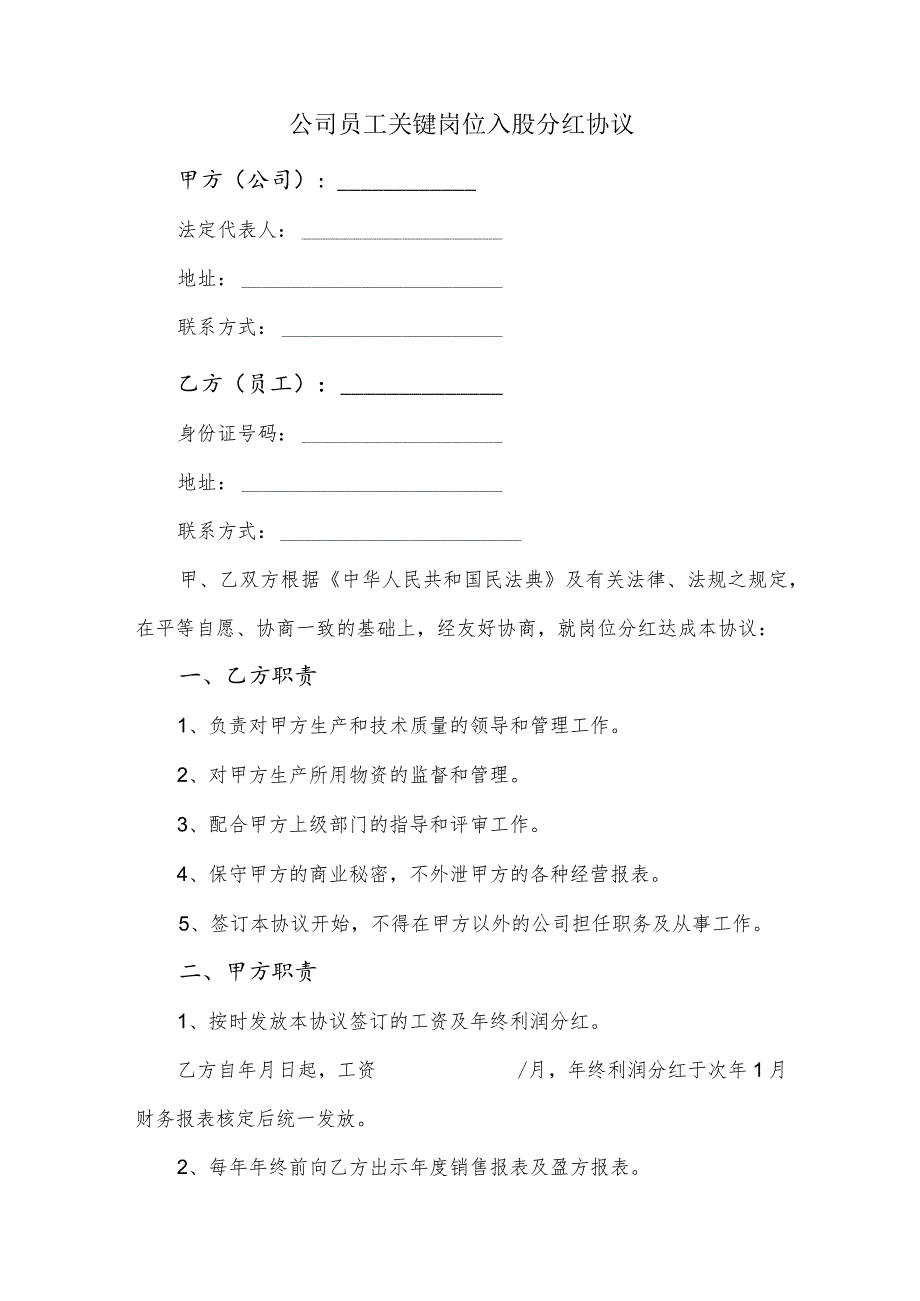 公司员工关键岗位入股分红协议
甲方（公司）：____________
法定代表人：____________________
地址：__________________________
联系方式：______________________
乙方（员工）：______________
身份证号码：____________________
地址：__________________________
联系方式：________________________
甲、乙双方根据《中华人民共和国民法典》及有关法律、法规之规定，
在平等自愿、协商一致的基础上，经友好协商，就岗位分红达成本协议：
一、乙方职责
1、负责对甲方生产和技术质量的领导和管理工作。
2、对甲方生产所用物资的监督和管理。
3、配合甲方上级部门的指导和评审工作。
4、保守甲方的商业秘密，不外泄甲方的各种经营报表。
5、签订本协议开始，不得在甲方以外的公司担任职务及从事工作。
二、甲方职责
1、按时发放本协议签订的工资及年终利润分红。
乙方自年月日起，工资 /月，年终利润分红于次年1月
财务报表核定后统一发放。
2、每年年终前向乙方出示年度销售报表及盈方报表。